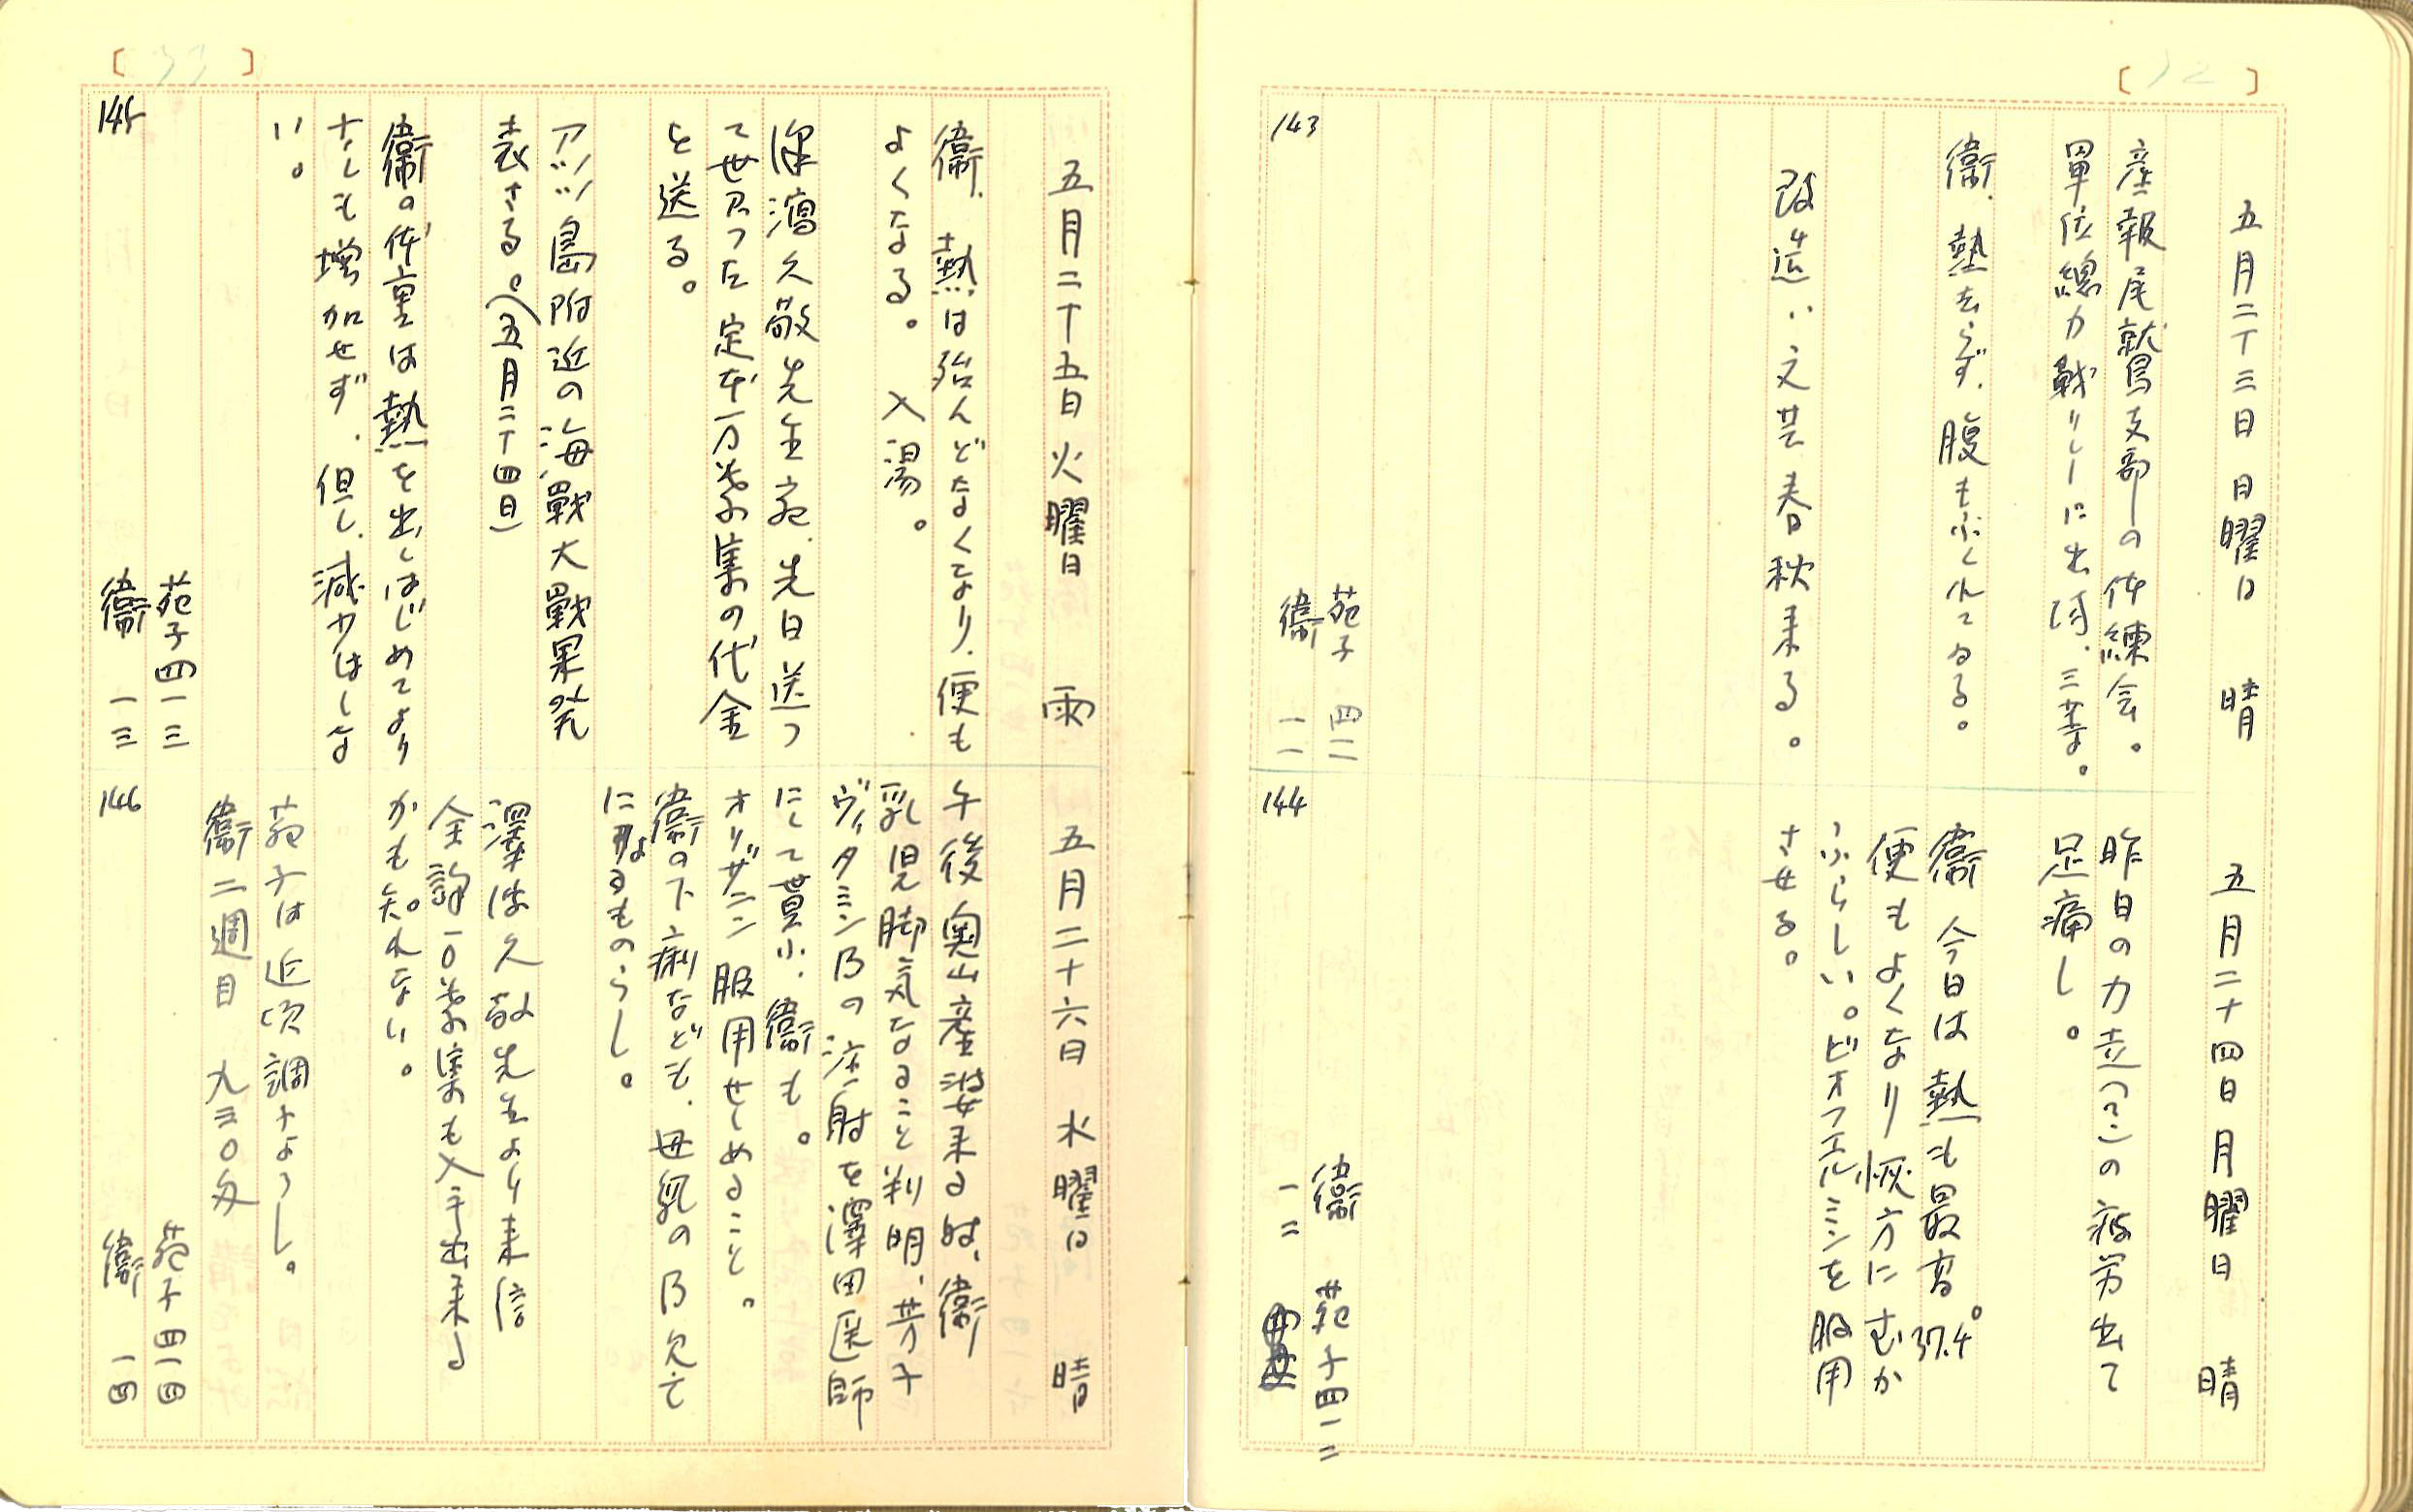 [32]
五月二十三日 日曜日 晴
産報尾就鳥支部の体練会。
單位總力戰リレーに出場、三等。
衞、熱去らず、腹もふくれてゐる。
改造、文芸春秋来る。
苑子 四一一
衞 一一
143
五月二十四日 月曜日 晴
昨日の力走(?)の疲労出て
足痛し。
衞 今日は熱も最高37.4°。
便もよくなり恢方にむか
ふらしい。ビオフェルミンを服用
させる。
衞 苑子四一二
一二
144
[33]
五月二十五日 火曜日 雨
衞、熱は殆んどなくなり、便も
よくなる。 入湯。
深瀉久敬先生宛、先日送つ
て貰つた定本一万葉集の代金
を送る。
アッツ島附近の海戰大戰果発
表さる。(五月二十四日)
衞の体重は熱を出しはじめてより
少しも増加せず、但し、減少はしな
い。
苑子四一三
衞 一三
145
五月二十六日 水曜日 晴
午後奥山産婆来る。衞
乳児脚気なること判明、芳子
ヴィタミンBの注射を澤田医師
にして貰ふ、衞も。
オリザニン服用せしめること。
衞の下痢なども、母乳のB欠亡
になるものらし。
澤 久敬先生より来信
全譯一万葉集も入手出来る
かも知れない。
苑子は近頃調子よろし。
衞 二週目 九三〇匁
苑子四一四
衞 一四
146